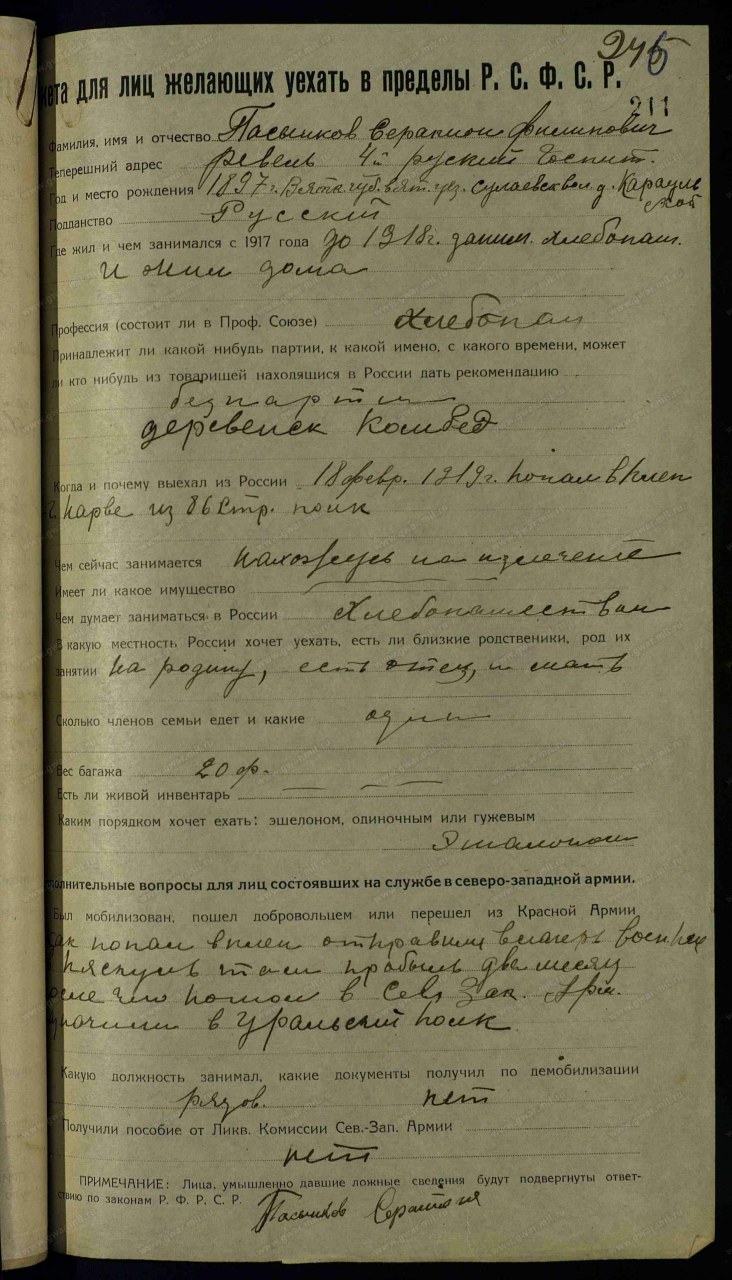 245
кета для лиц желающих уехать в пределы Р. С. Ф. С. Р.
211
Фамилия, имя и отчество Пасынков Серапион Филипович
Теперешний адрес Ревель 4й руский Госпит.
Год и место рождения 1897 г. Вятск губ. вят. уез. вол. д. Карауль
Подданство Русский
Где жил и чем занимался с 1917 года до 1918 г. заним. хлебопаш.
и жил дома
Профессия (состоит ли в Проф. Союзе) Хлебопаш
Принадлежит ли какой нибудь партии, к какой имено, с какого времени, может
ли кто нибудь из товарищей находящися в России дать рекомендацию
безпартий
деревенск Комбед
Когда и почему выехал из России 18 февр. 1919 г. попал в плен
г. Нарве из 86 Стр. полк
Чем сейчас занимается нахожусь на излечение
Имеет ли какое имущество
Чем думает заниматься в России Хлебопашеством
В какую местность России хочет уехать, есть ли близкие родственики, род их
занятии На родину, есть отец, и мать
Сколько членов семьи едет и какие один
Вес багажа 20 ф.
Есть ли живой инвентарь
Каким порядком хочет ехать: эшелоном, одиночным или гужевым
Эшалоном
полнительные вопросы для лиц состоявших на службе в северо-западной армии.
Был мобилизован, пошел добровольцем или перешел из Красной Армии
как попал в плен отправили в лагерь воен плен
там пробыл два месяц
после чего попал в Сев Зап. Арм.
в Уральский полк.
Какую должность занимал, какие документы получил по демобилизации
рядов. нет
Получили пособие от Ликв. Комиссии Сев.-Зап. Армии
нет
ПРИМЕЧАНИЕ: Лица, умышленно давшие ложные сведения будут подвергнуты ответ-
ствию по законам Р. Ф. Р. С. Р.
Пасынков